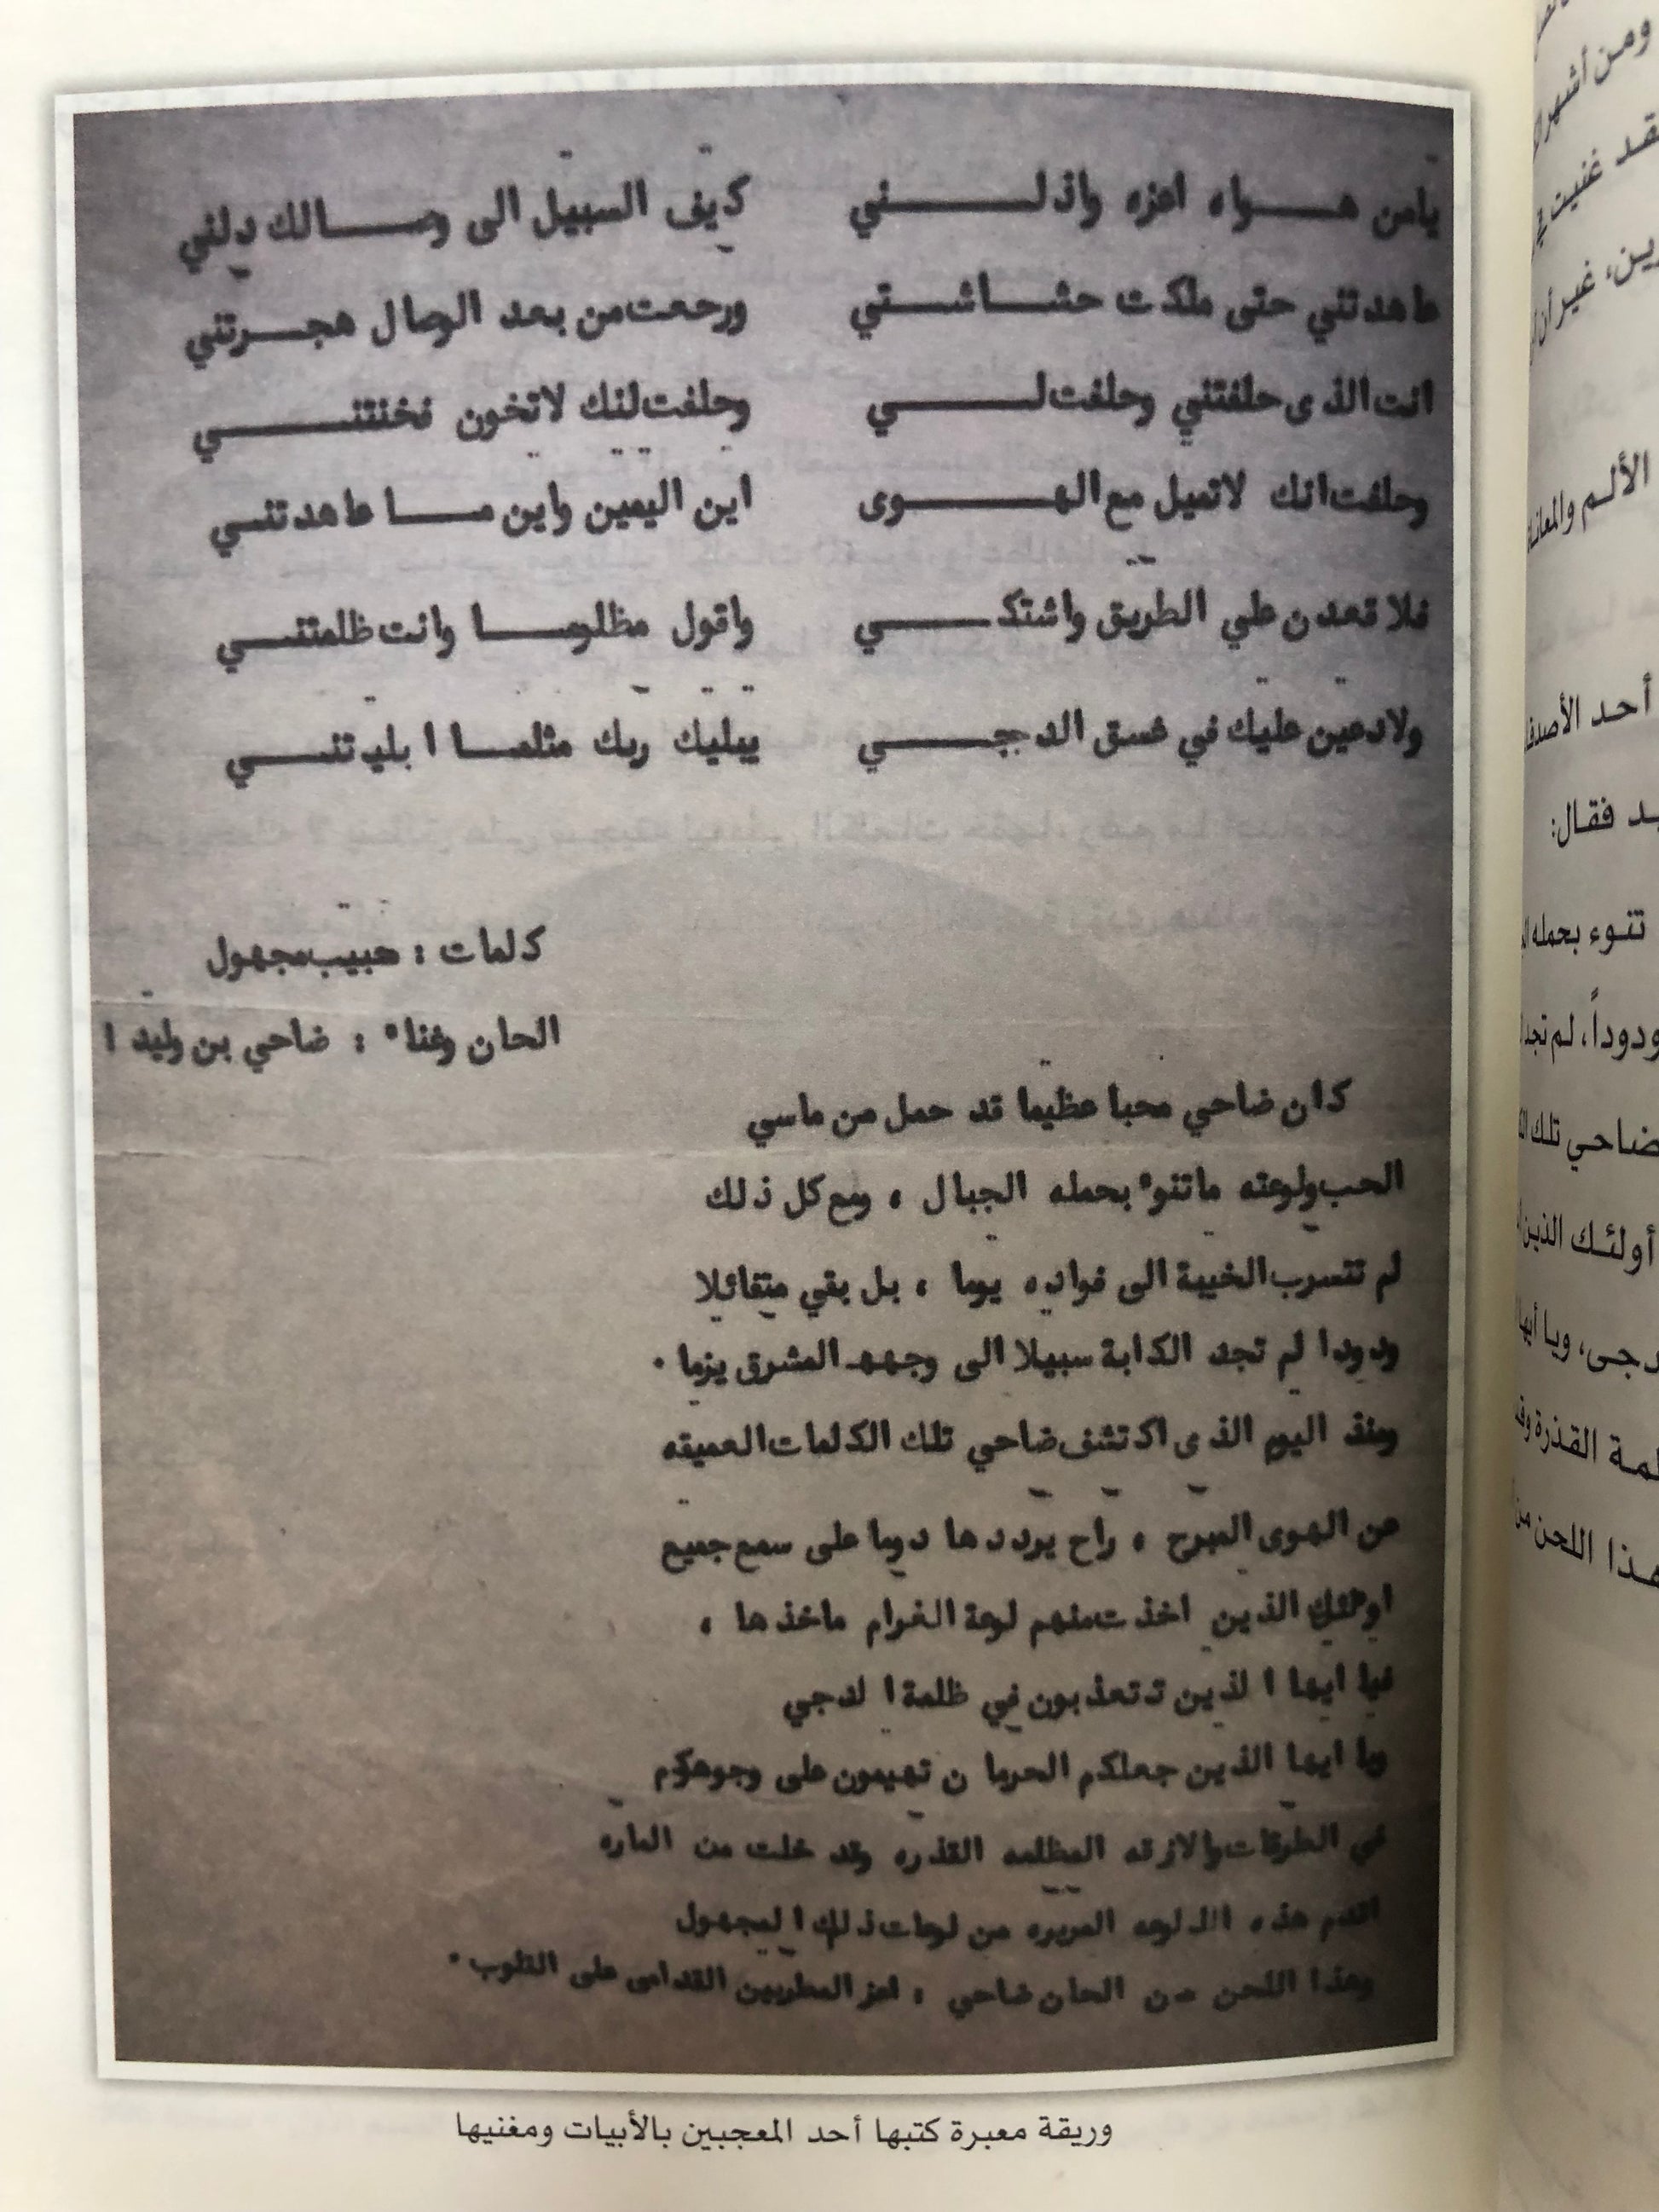 يامن هـــواه اعزه واذلـــــني كيف السبيل الى وصـــالك دلني
عاهدتني حتى ملكت حشـــاشـــتي ورجعت من بعد الوصال هجـــرتني
انت الذى حلفتني وحلفت لـــــي وحلفت لنك لا تخون فخنتنـــــي
وحلفت انك لاتميل مع الهـــــوى اين اليمين واين مـــا عاهدتني
فلا قعدن علي الطريق واشتكـــــي واقول مظلومـــا وانت ظلمتنـــي
ولادعين عليك في غسق الدجـــــي يبليك ربك مثلمـــا ابليتنـــي
كلمات : حبيب مجهول
الحان وغناء : ضاحي بن وليد !
كان ضاحي محبا عظيما قد حمل من ماسي
الحب ولوعته ماتنوء بحمله الجبال ، ومع كل ذلك
لم تتسرب الخيبة الى فواده يوما ، بل بقي متفائلا
ودودا لم تجد الكابة سبيلا الى وجهه المشرق يوما .
ومنذ اليوم الذى اكتشف ضاحي تلك الكلمات العميقه
عن الهوى المبرح ، راح يرددها دوما على سمع جميع
اولئك الذين اخذت منهم لوعة الغرام ماخذها ،
فيا ايها الذين تتعذبون في ظلمة الدجي
ويا ايها الذين جعلكم الحرمان تهيمون على وجوهكم
في الطرقات والازقه المظلمه القذره وقد خلت من الماره
اقدم هذه اللوعه المريره من لوعات ذلك المجهول
وهذا اللحن من الحان ضاحي ، اعز المطربين القدامى على القلوب .
وريقة معبرة كتبها أحد المعجبين بالأبيات ومغنيها
ومن أشهر
غنيت
غير أن
الألم والمعاناة
أحد
فقال:
تنوء بحمله
ودوداً، لم تجد
ضاحي تلك
أولئك الذين
ويا أيها
القذرة
اللحن من